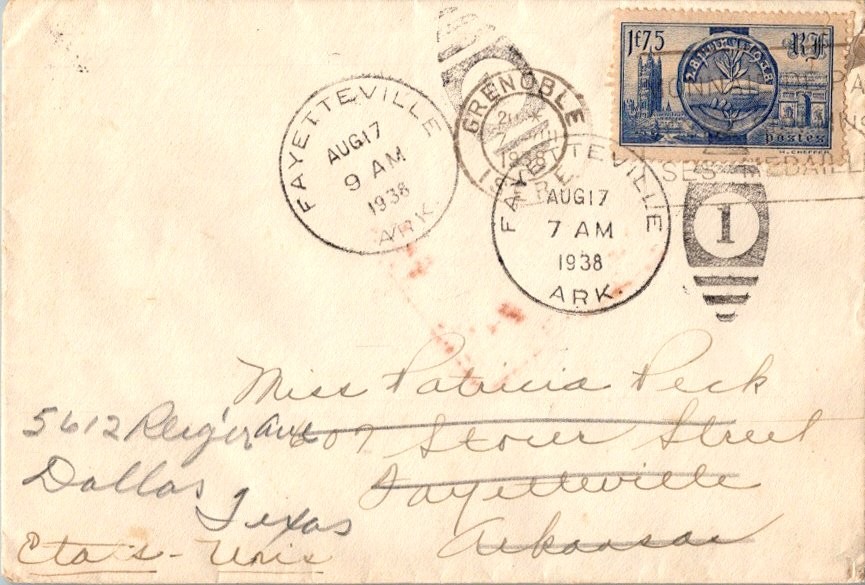 1f75
RF
postes
GRENOBLE
1938
ISERE
FAYETTEVILLE
AUG 17
9 AM
1938
ARK.
FAYETTEVILLE
AUG 17
7 AM
1938
ARK.
1
Miss Patricia Peck
607 Storer Street
Fayetteville
Arkansas
5612 Reiger Ave
Dallas
Texas
Etats-Unis